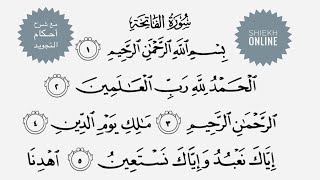 مع شرح
أحكام
التجويد
سُورَةُ الفَاتِحَةِ
SHIEKH
ONLINE
بِسْمِ اللَّهِ الرَّحْمَٰنِ الرَّحِيمِ ١
الْحَمْدُ لِلَّهِ رَبِّ الْعَالَمِينَ ٢
الرَّحْمَٰنِ الرَّحِيمِ ٣ مَالِكِ يَوْمِ الدِّينِ ٤
إِيَّاكَ نَعْبُدُ وَإِيَّاكَ نَسْتَعِينُ ٥ اهْدِنَا